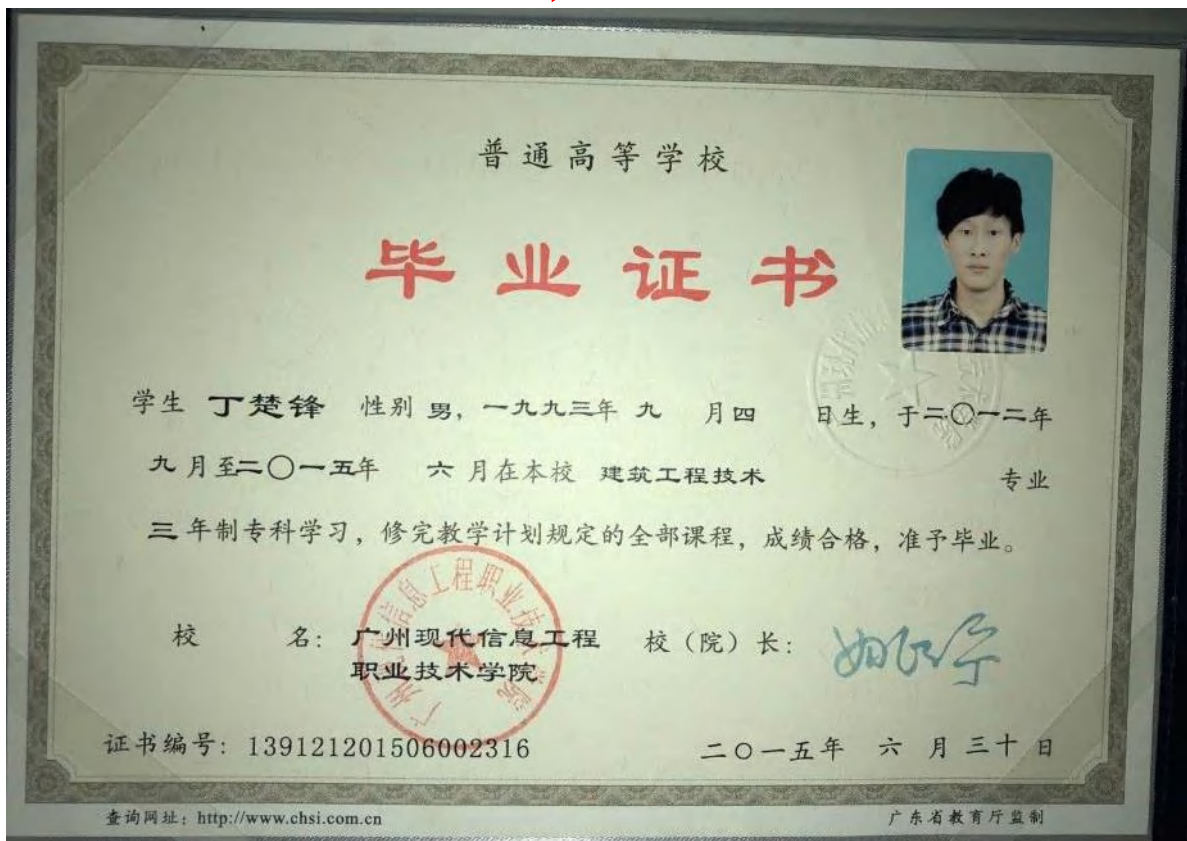 普通高等学校
毕业证书
学生 丁楚锋 性别 男，一九九三年 九 月四 日生，于二〇一二年
九 月至二〇一五年 六 月在本校 建筑工程技术 专业
三 年制专科学习，修完教学计划规定的全部课程，成绩合格，准予毕业。
校 名：广州现代信息工程 校（院）长：
职业技术学院
证书编号：139121201506002316 二〇一五年 六 月三十 日
查询网址：http://www.chsi.com.cn 广东省教育厅监制